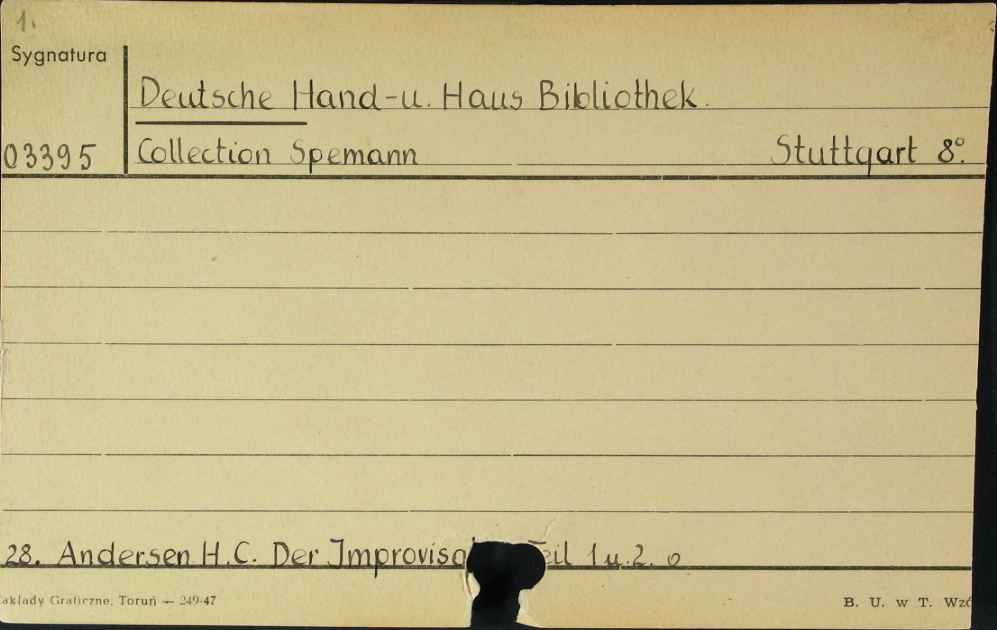 1.
Sygnatura
Deutsche Hand-u. Haus Bibliothek.
03395 Collection Spemann Stuttgart 8°.
28. Andersen H.C. Der Improvisa Teil 1 u. 2. o
akłady Graficzne, Toruń — 249-47 B. U. w T. Wzó